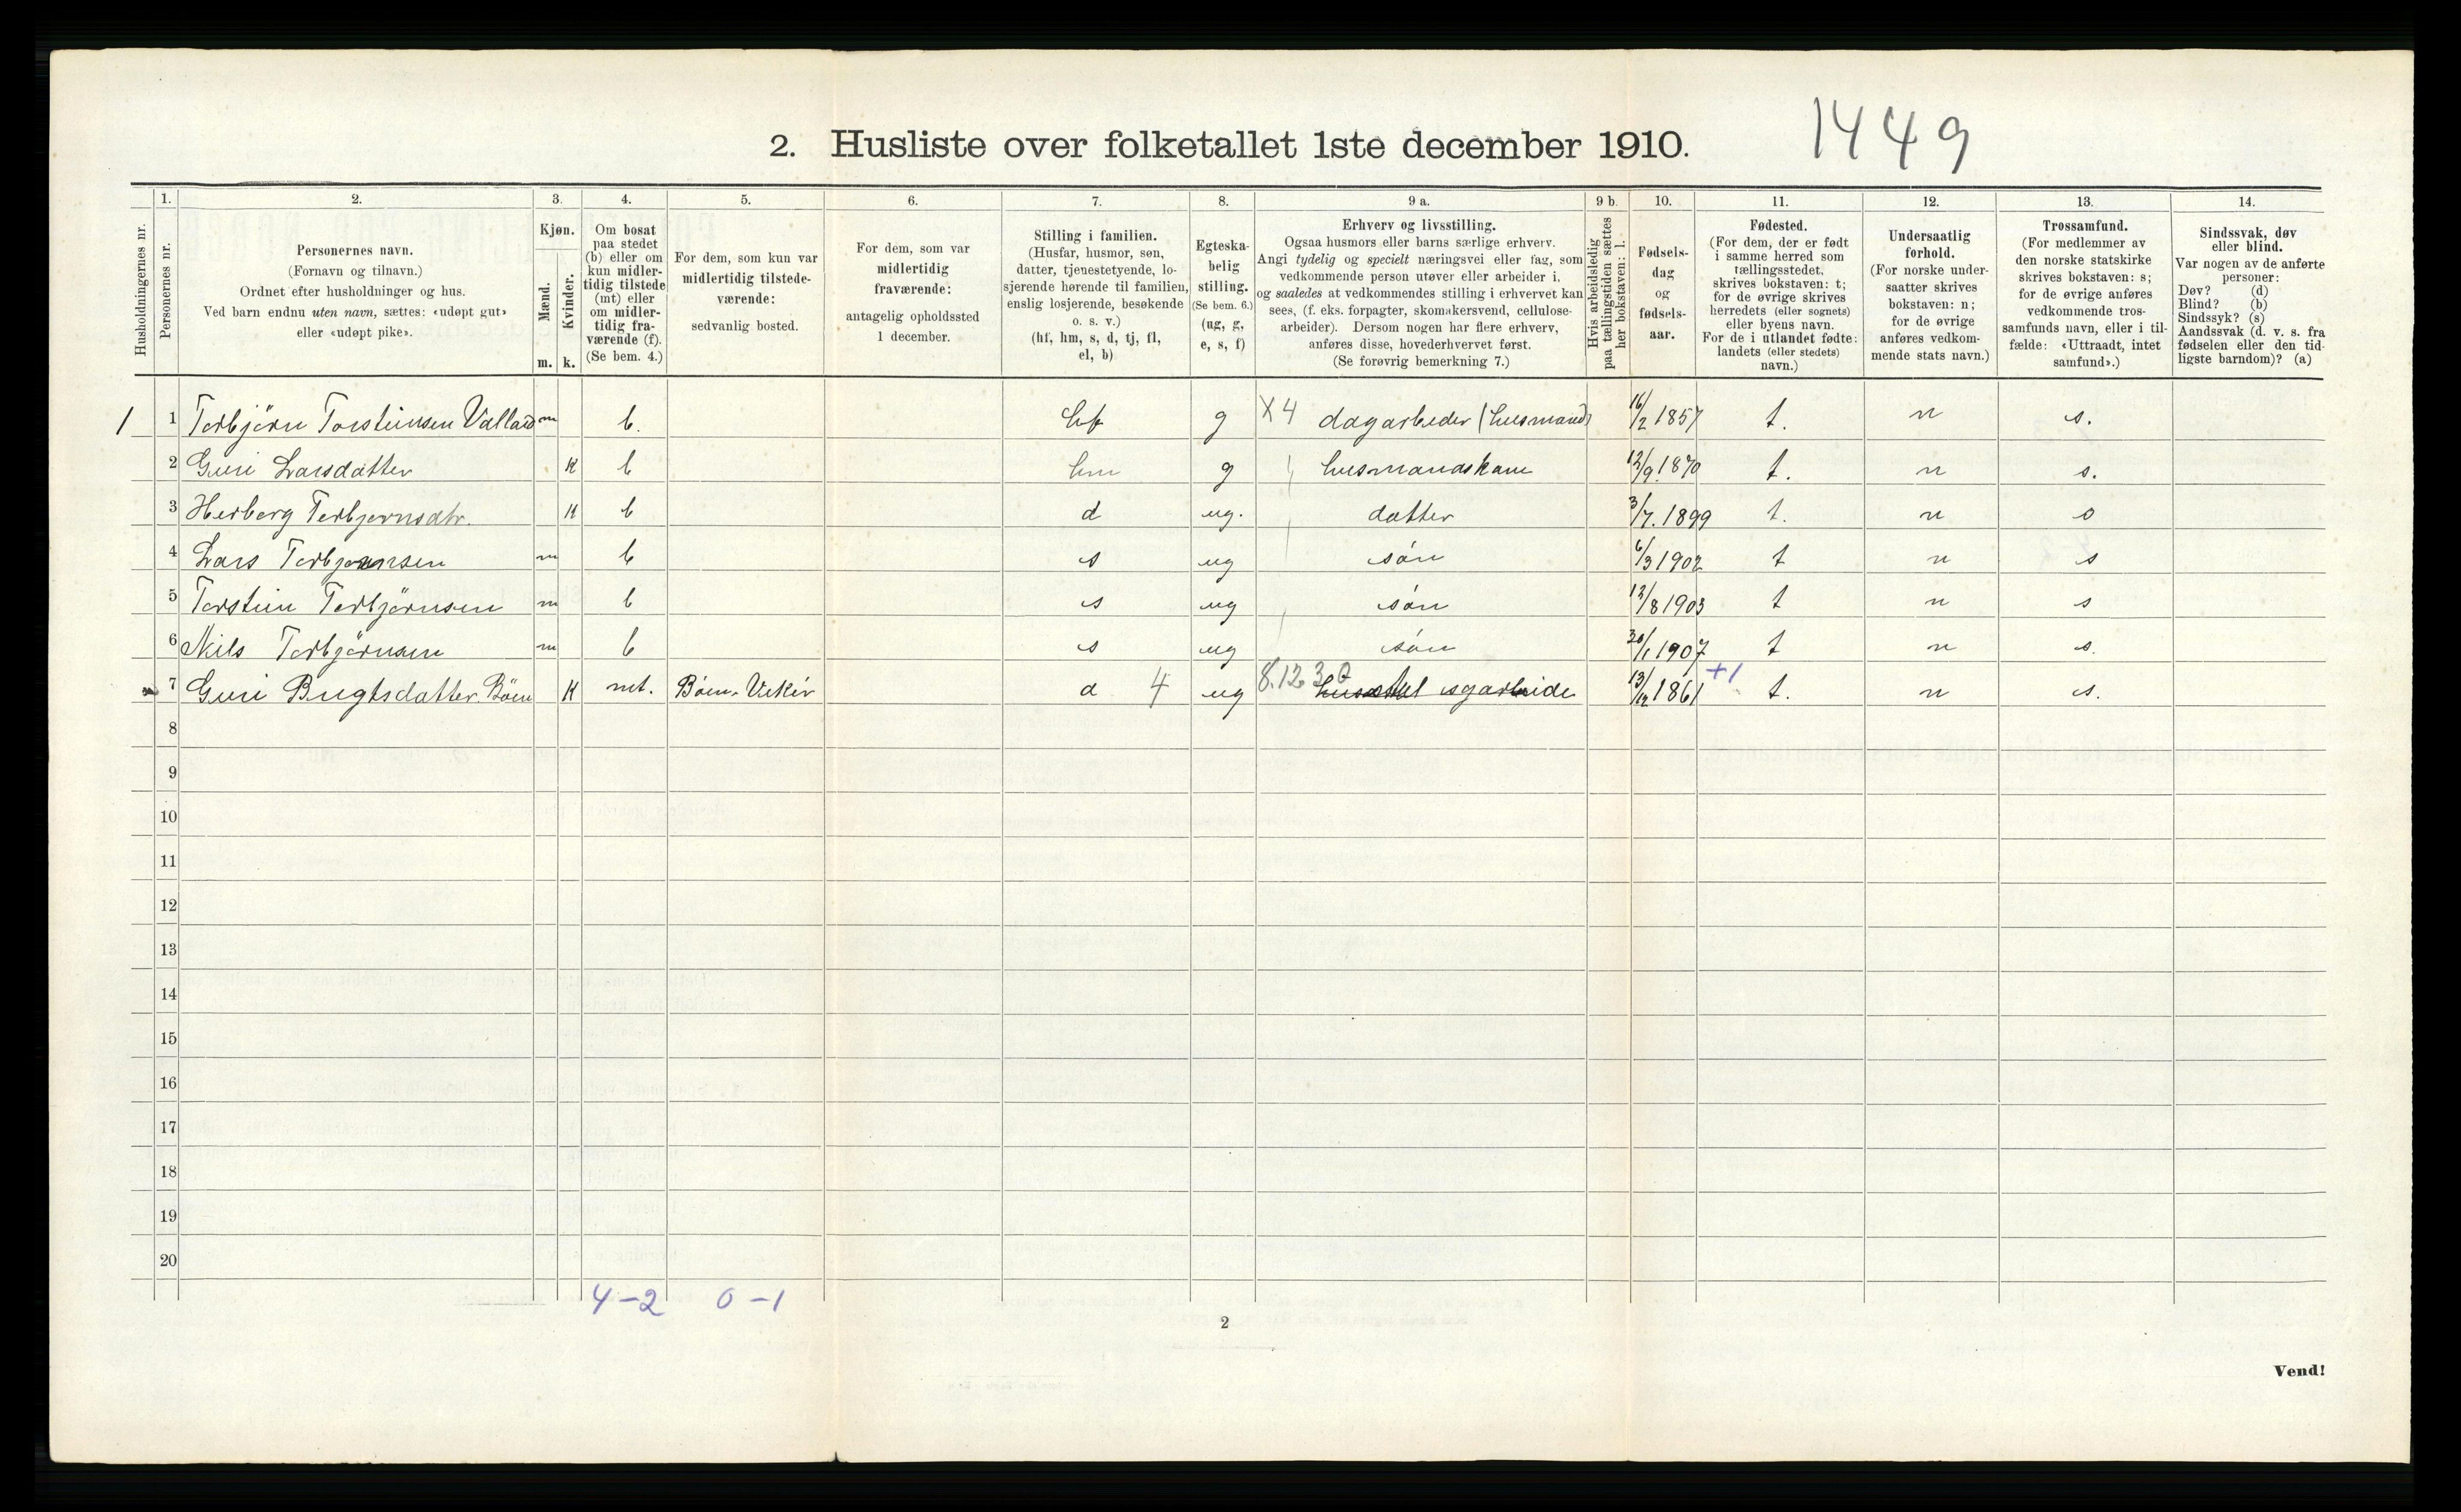 2. Husliste over folketallet 1ste december 1910. 1449
1. 2. 3. 4. 5. 6. 7. 8. 9 a. 9 b. 10. 11. 12. 13. 14.
Husholdningernes nr.
Personernes nr.
Personernes navn.
(Fornavn og tilnavn.)
Ordnet efter husholdninger og hus.
Ved barn endnu uten navn, sættes: «udøpt gut»
eller «udøpt pike».
Kjøn.
Mænd.
Kvinder.
m. k.
Om bosat
paa stedet
(b) eller om
kun midler-
tidig tilstede
(mt) eller
om midler-
tidig fra-
værende (f).
(Se bem. 4.)
For dem, som kun var
midlertidig tilstede-
værende:
sedvanlig bosted.
For dem, som var
midlertidig
fraværende:
antagelig opholdssted
1 december.
Stilling i familien.
(Husfar, husmor, søn,
datter, tjenestetyende, lo-
sjerende hørende til familien,
enslig losjerende, besøkende
o. s. v.)
(hf, hm, s, d, tj, fl,
el, b)
Egteska-
belig
stilling.
(Se bem. 6.)
(ug, g,
e, s, f)
Erhverv og livsstilling.
Ogsaa husmors eller barns særlige erhverv.
Angi tydelig og specielt næringsvei eller fag, som
vedkommende person utøver eller arbeider i,
og saaledes at vedkommendes stilling i erhvervet kan
sees, (f. eks. forpagter, skomakersvend, cellulose-
arbeider). Dersom nogen har flere erhverv,
anføres disse, hovederhvervet først.
(Se forøvrig bemerkning 7.)
Hvis arbeidsledig
paa tællingstiden sættes
her bokstaven: l.
Fødsels-
dag
og
fødsels-
aar.
Fødested.
(For dem, der er født
i samme herred som
tællingsstedet,
skrives bokstaven: t;
for de øvrige skrives
herredets (eller sognets)
eller byens navn.
For de i utlandet fødte:
landets (eller stedets)
navn.)
Undersaatlig
forhold.
(For norske under-
saatter skrives
bokstaven: n;
for de øvrige
anføres vedkom-
mende stats navn.)
Trossamfund.
(For medlemmer av
den norske statskirke
skrives bokstaven: s;
for de øvrige anføres
vedkommende tros-
samfunds navn, eller i til-
fælde: «Uttraadt, intet
samfund».)
Sindssvak, døv
eller blind.
Var nogen av de anførte
personer:
Døv? (d)
Blind? (b)
Sindssyk? (s)
Aandssvak (d. v. s. fra
fødselen eller den tid-
ligste barndom)? (a)
1 1 Torbjörn Torsteinsen m b. hf g X4 dagarbeder (husmand) 16/2 1857 t. n s.
2 Guri Larsdatter K b hm g husmandskone 12/9 1870 t. n s.
3 Herborg Torbjornsdtr. K b d ug. datter 3/7. 1899 t. n s
4 Lars Torbjornsen m b s ug sön 6/3 1902 t n s
5 Torstein Torbjörnsen m b s ug sön 12/8 1903 t n s
6 Nils Torbjörnsen m b s ug sön 30/1 1907 t n s.
7 Guri Böen K mt. Böen d 4 ug 8.12.30 13/12 1861 +1 t. n s.
8
9
10
11
12
13
14
15
16
17
18
19
20
4-2 0-1
2
Vend!